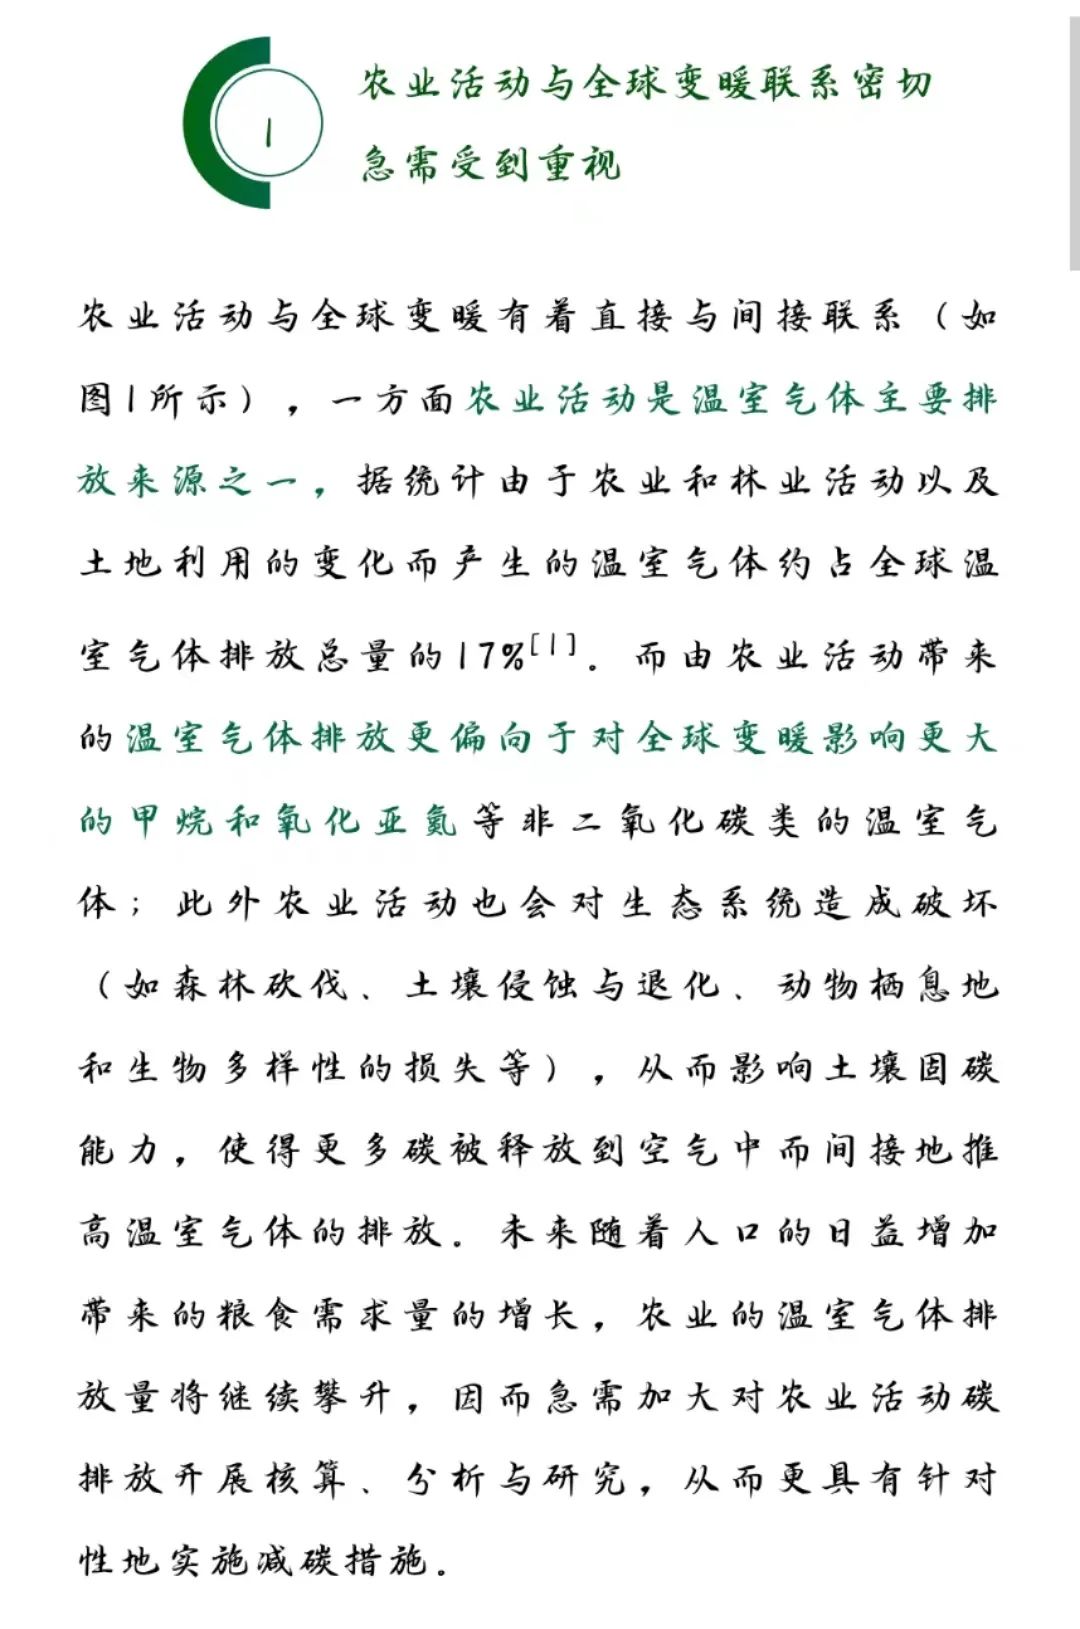 1
农业活动与全球变暖联系密切
急需受到重视
农业活动与全球变暖有着直接与间接联系（如
图1所示），一方面农业活动是温室气体主要排
放来源之一，据统计由于农业和林业活动以及
土地利用的变化而产生的温室气体约占全球温
室气体排放总量的17%[1]。而由农业活动带来
的温室气体排放更偏向于对全球变暖影响更大
的甲烷和氧化亚氮等非二氧化碳类的温室气
体；此外农业活动也会对生态系统造成破坏
（如森林砍伐、土壤侵蚀与退化、动物栖息地
和生物多样性的损失等），从而影响土壤固碳
能力，使得更多碳被释放到空气中而间接地推
高温室气体的排放。未来随着人口的日益增加
带来的粮食需求量的增长，农业的温室气体排
放量将继续攀升，因而急需加大对农业活动碳
排放开展核算、分析与研究，从而更具有针对
性地实施减碳措施。